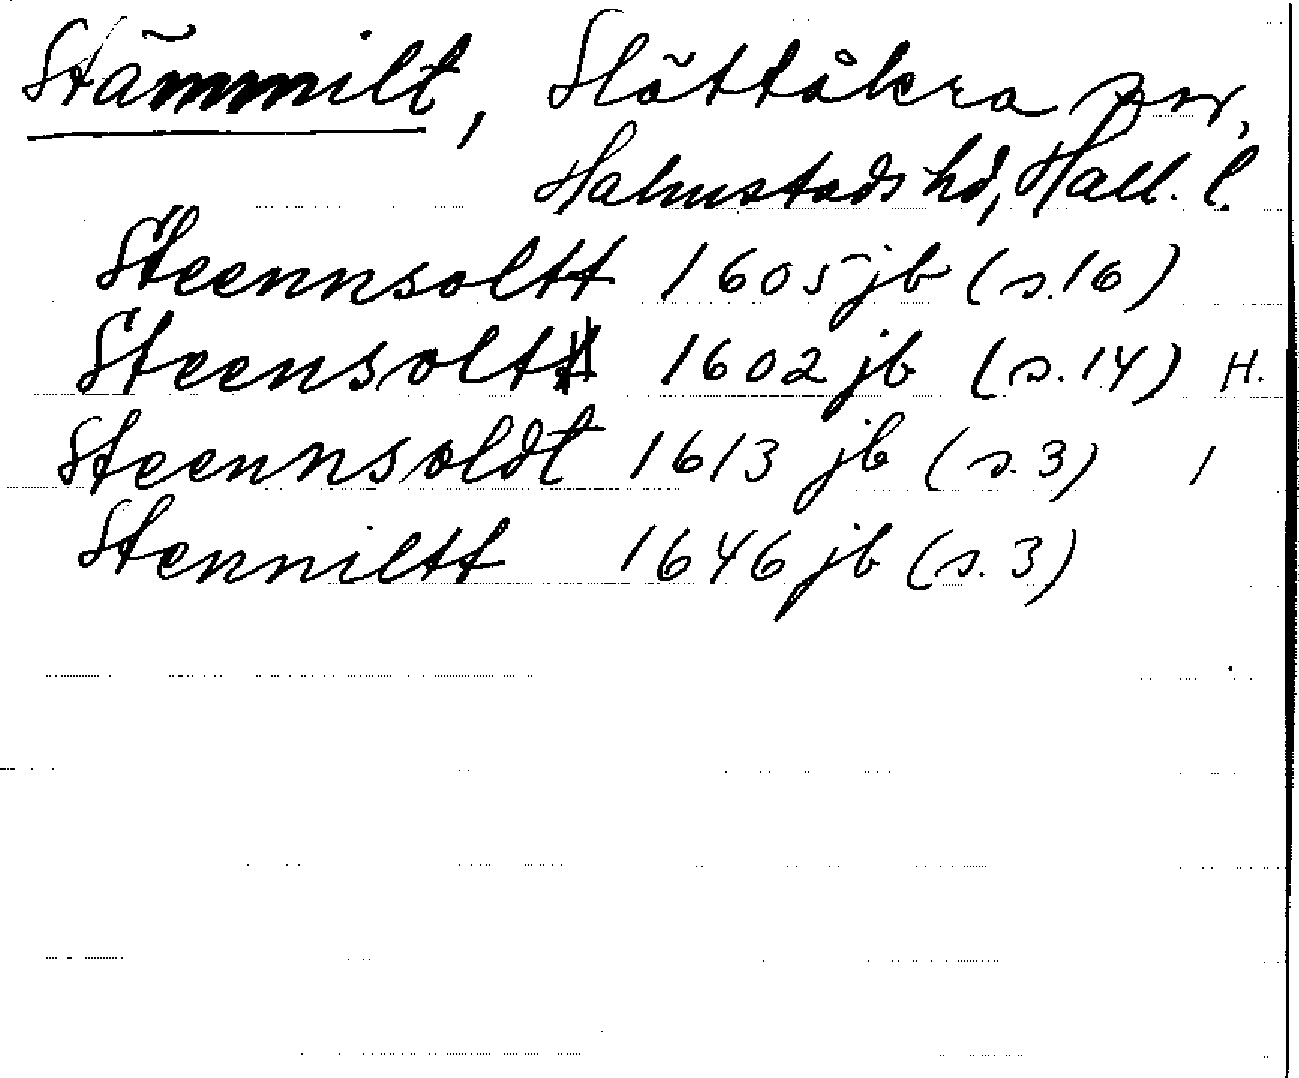 Stämmilt, Slättåkra sn,
Halmstads hd, Hall. l.
Steennsoltt 1605 jb (s. 16)
Steensoltt 1602 jb (s. 14) H.
Steennsoldt 1613 jb (s. 3) 1
Stenniltt 1646 jb (s. 3)